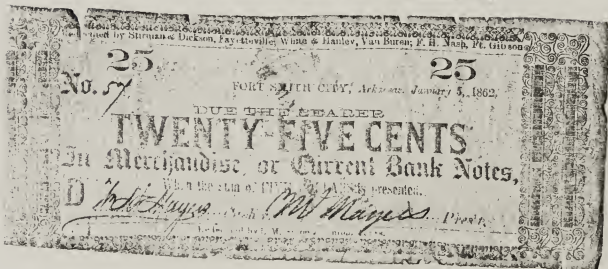 by Stirman & Dickson, Fayetteville; White & Hanley, Van Buren; F. H. Nash, Ft. Gibson
25 25
No. 57 FORT SMITH CITY, Arkansas, January 5, 1862,
DUE THE BEARER
TWENTY-FIVE CENTS
In Merchandise, or Current Bank Notes,
When the sum of presented.
D Mayers Presr.